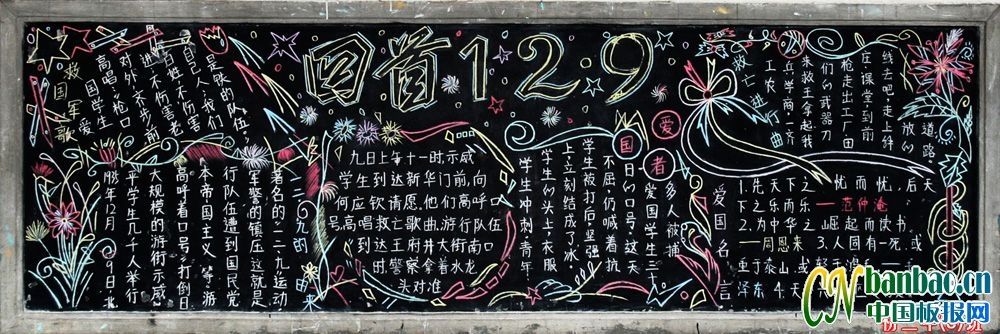 回首12.9
救国军歌
爱国学生
高唱:枪口
对外,齐步前
进!不伤害老
百姓,不伤害
自己人!我们
是铁的队伍,
1935年12月9日,北
平学生几千人举行
大规模的游街示威
高呼着口号:打倒日
本帝国主义等,游
行队伍遭到国民党
军警的镇压这就是
著名的一二九运动
九的由来
九日上午十一时示威
学生到达新华门前,向
何应钦请愿,他们高呼口
号,高唱救亡歌曲,游行队伍
到达王府井大街南口
时,警察拿着水龙
头对准
学生冲刺,青年
学生的头上,衣服
上立刻结成了冰.
学生被打后,坚强
不屈仍喊着抗
日的口号,这一天
爱国学生三十
多人被捕
爱国者
救亡进行曲
工农
兵学商一齐
来救亡拿起我
们的武器刀
枪走出工厂田
庄课堂到前
线去吧走上解
放的
道路
爱国名言
1.先天下之忧而忧,后天
下之乐而乐——范仲淹
2.为中华之崛起而读书.
——周恩来 3.人固有一死,或
重于泰山,或轻于鸿
泽东 4.天下
CN banbao.cn
中国板报网